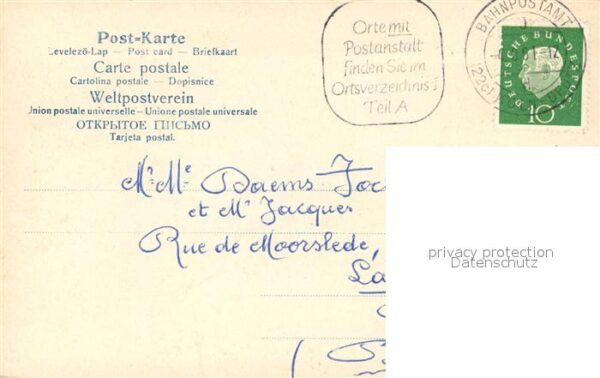 Post-Karte
Levelező-Lap — Post card — Briefkaart
Carte postale
Cartolina postale — Dopisnice
Weltpostverein
Union postale universelle — Unione postale universale
ОТКРЫТОЕ ПИСЬМО
Tarjeta postal.
Orte mit
Postanstalt
finden Sie im
Ortsverzeichnis I
Teil A
BAHNPOSTAMT
DEUTSCHE BUNDESPOST
10
Mr Me Daems
et Mr Jacques
Rue de Moorslede,
privacy protection
Datenschutz